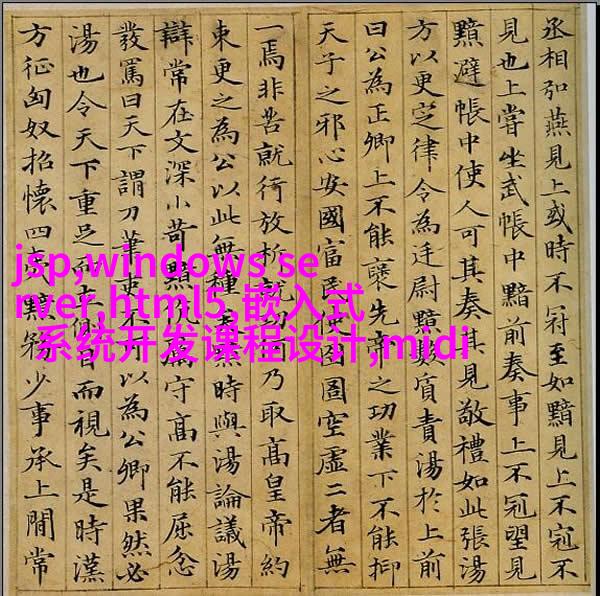 丞相弘燕見上或時不冠至如黯見上不冠不
見也上嘗坐武帳中黯前奏事上不冠望見
黯避帳中使人可其奏其見敬禮如此張湯
方以更定律令為廷尉黯數質責湯於上前
曰公為正卿上不能襃先帝之功業下不能抑
天子之邪心安國富民使囹圄空虛二者無
一焉非苦就行放析就功乃取高皇帝約
束更之為公以此無種矣黯時與湯論議湯
辯常在文深小苛黯厲守高不能屈忿
發罵曰天下謂刀筆吏不可以為公卿果然必
湯也令天下重足而立側目而視矣是時漢
方征匈奴招懷四夷黯務少事承上閒常
jsp,windows se
rver,html5,嵌入式
系统开发课程设计,midi